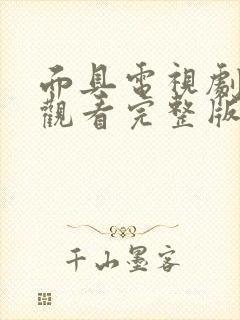 面具電視劇
觀看完整版
千山墨客